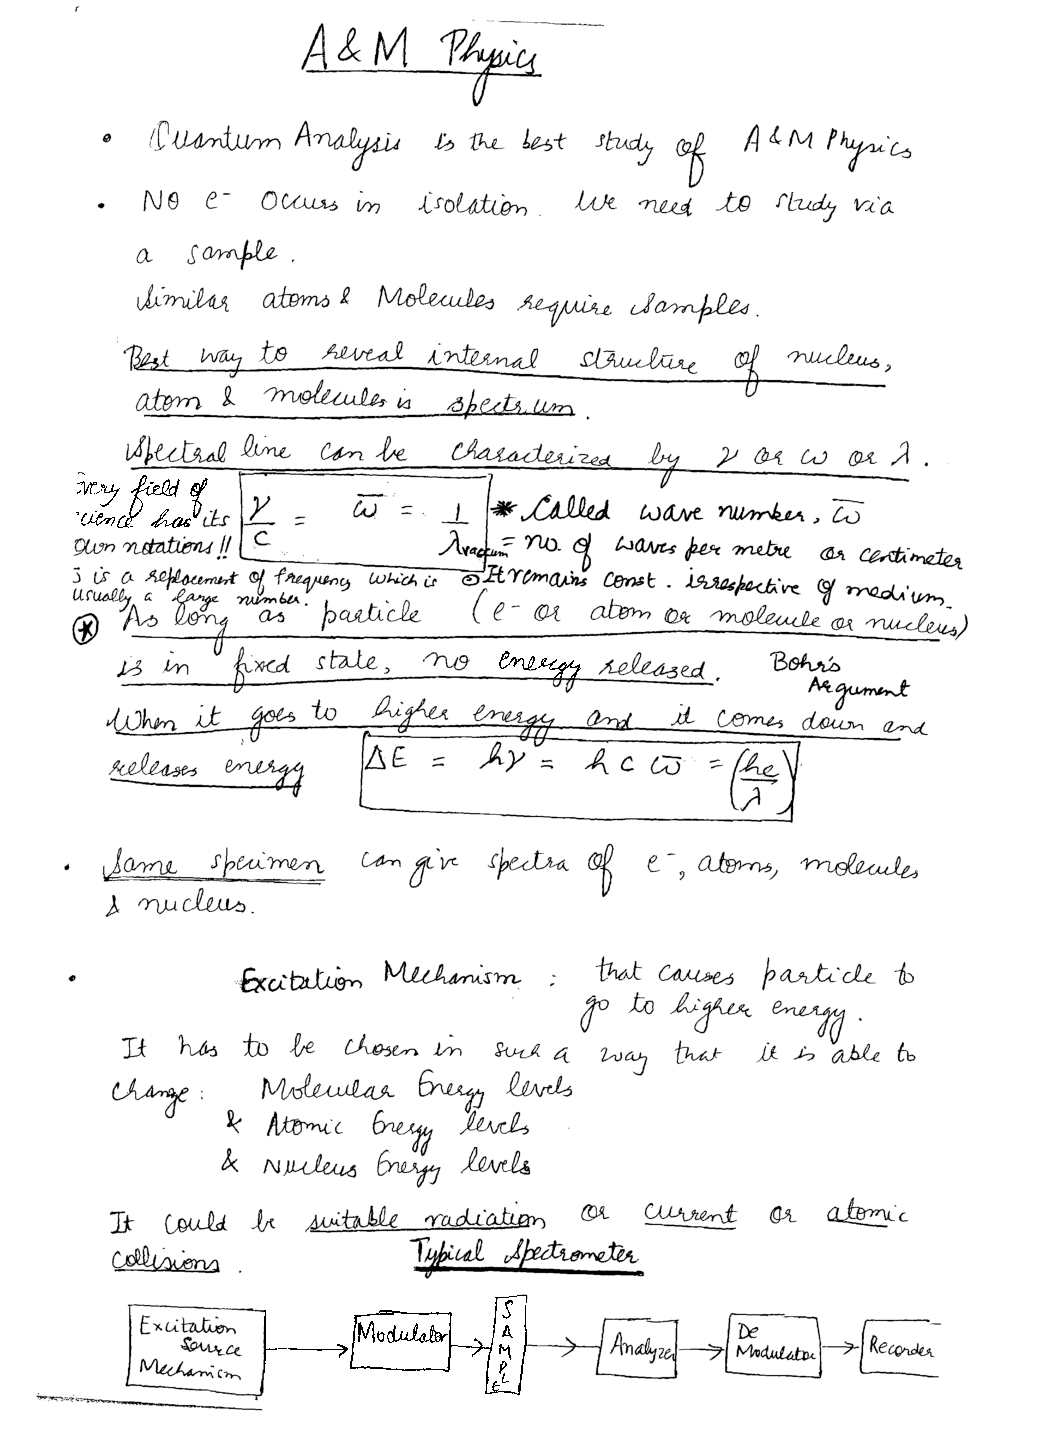 A & M Physics
• Quantum Analysis is the best study of A & M Physics
• No e⁻ occurs in isolation. We need to study via
a sample.
Similar atoms & Molecules require samples.
Best way to reveal internal structure of nucleus,
atom & molecules is spectrum.
Spectral line can be characterized by ν or ω or λ.
very field of
cience has its
own notations!!
ν/c = ω̅ = 1/λvacuum
* Called wave number, ω̅
= no. of waves per metre or centimeter
⊙ It remains const. irrespective of medium.
is a replacement of frequency which is
usually a large number.
⊛ As long as particle (e⁻ or atom or molecule or nucleus)
is in fixed state, no energy released. Bohr's
Argument
When it goes to higher energy and it comes down and
releases energy ΔE = hν = hcω̅ = (hc/λ)
• Same specimen can give spectra of e⁻, atoms, molecules
& nucleus.
• Excitation Mechanism : that causes particle to
go to higher energy.
It has to be chosen in such a way that it is able to
change: Molecular Energy levels
& Atomic Energy levels
& Nucleus Energy levels
It could be suitable radiation or current or atomic
collisions.
Typical Spectrometer
Excitation
Source
Mechanism
Modulator
SAMPLE
Analyzer
De
Modulator
Recorder